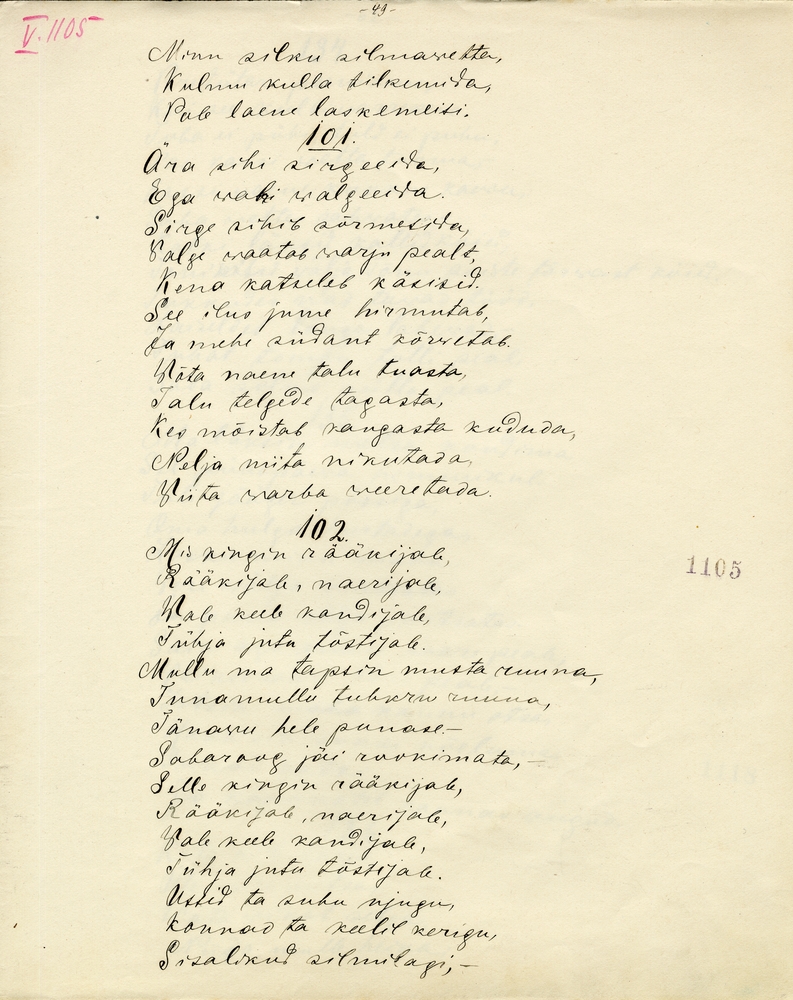 - 49 -
V. 1105
Minu silku silmawetta,
Kulmu kulla tilkemida,
Pale laene laskemeisi.
101.
Ära sihi sirgeeida,
Ega wahi walgeeida.
Sirge sihib sõrmesida,
Walge waatab warju pealt,
Kena katseleb käsisid.
See ilus jume hirmutab,
Ja mehe südant kõrwetab.
Wõta naene talu tuasta,
Talu telgede tagasta,
Kes mõistab kangasta kududa,
Nelja niita nikutada,
Wiita warba weeretada.
102.
Mis kingin rääkijale,
Rääkijale, naerijale,
Wale keele kandijale,
Tühja jutu tõstijale.
Mullu ma tapsin musta ruuna,
Tunamullu tuhkru ruuna,
Tänawu hele punase.-
Sabaroog jäi rookimata,-
Selle kingin rääkijale,
Rääkijale, naerijale,
Wale keele kandijale,
Tühja jutu tõstijale.
Ussid ta suhu ujugu,
Konnad ta keelil kerigu,
Sisalikud silmilagi,-
1105